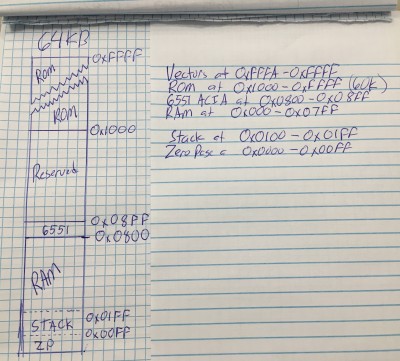 64KB
0xFFFF
Rom
ROM
0x1000
Reserved
0x08FF
6551
0x0800
RAM
0x01FF
STACK
0x00FF
ZP
Vectors at 0xFFFA-0xFFFF
ROM at 0x1000-0xFFFF (60K)
6551 ACIA at 0x0800-0x08FF
RAM at 0x000-0x07FF
Stack at 0x0100-0x01FF
Zero Page @ 0x0000-0x00FF